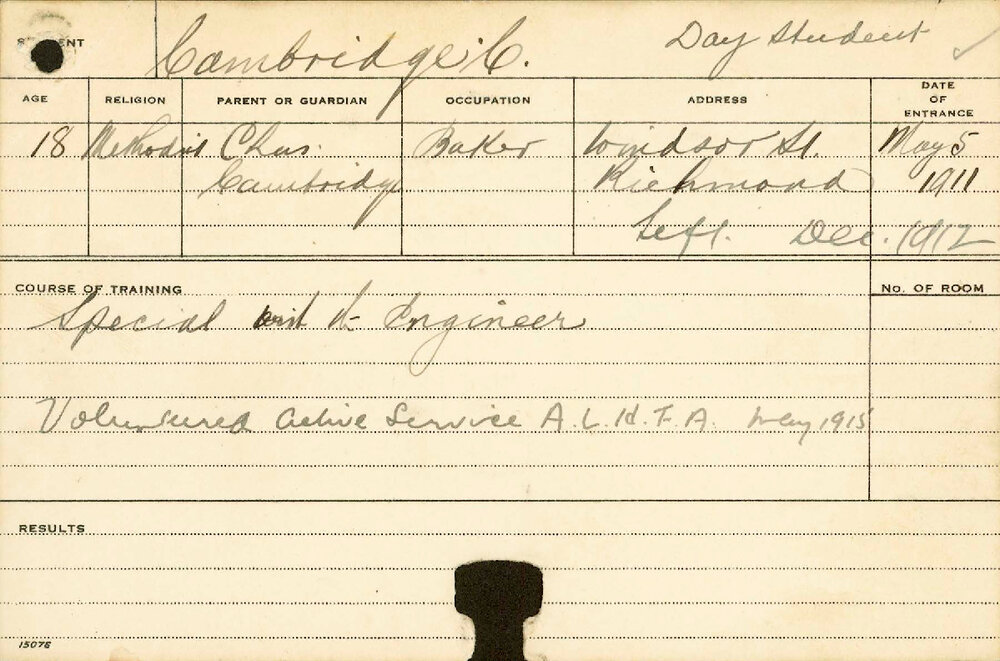 STUDENT Cambridge C. Day Student ✓
AGE RELIGION PARENT OR GUARDIAN OCCUPATION ADDRESS DATE OF ENTRANCE
18 Methodist Chas. Baker Windsor St. May 5
Cambridge Richmond 1911
Left. Dec. 1912
COURSE OF TRAINING No. OF ROOM
Special Engineer
Volunteered active Service A.L.H.F.A. May 1915
RESULTS
15076